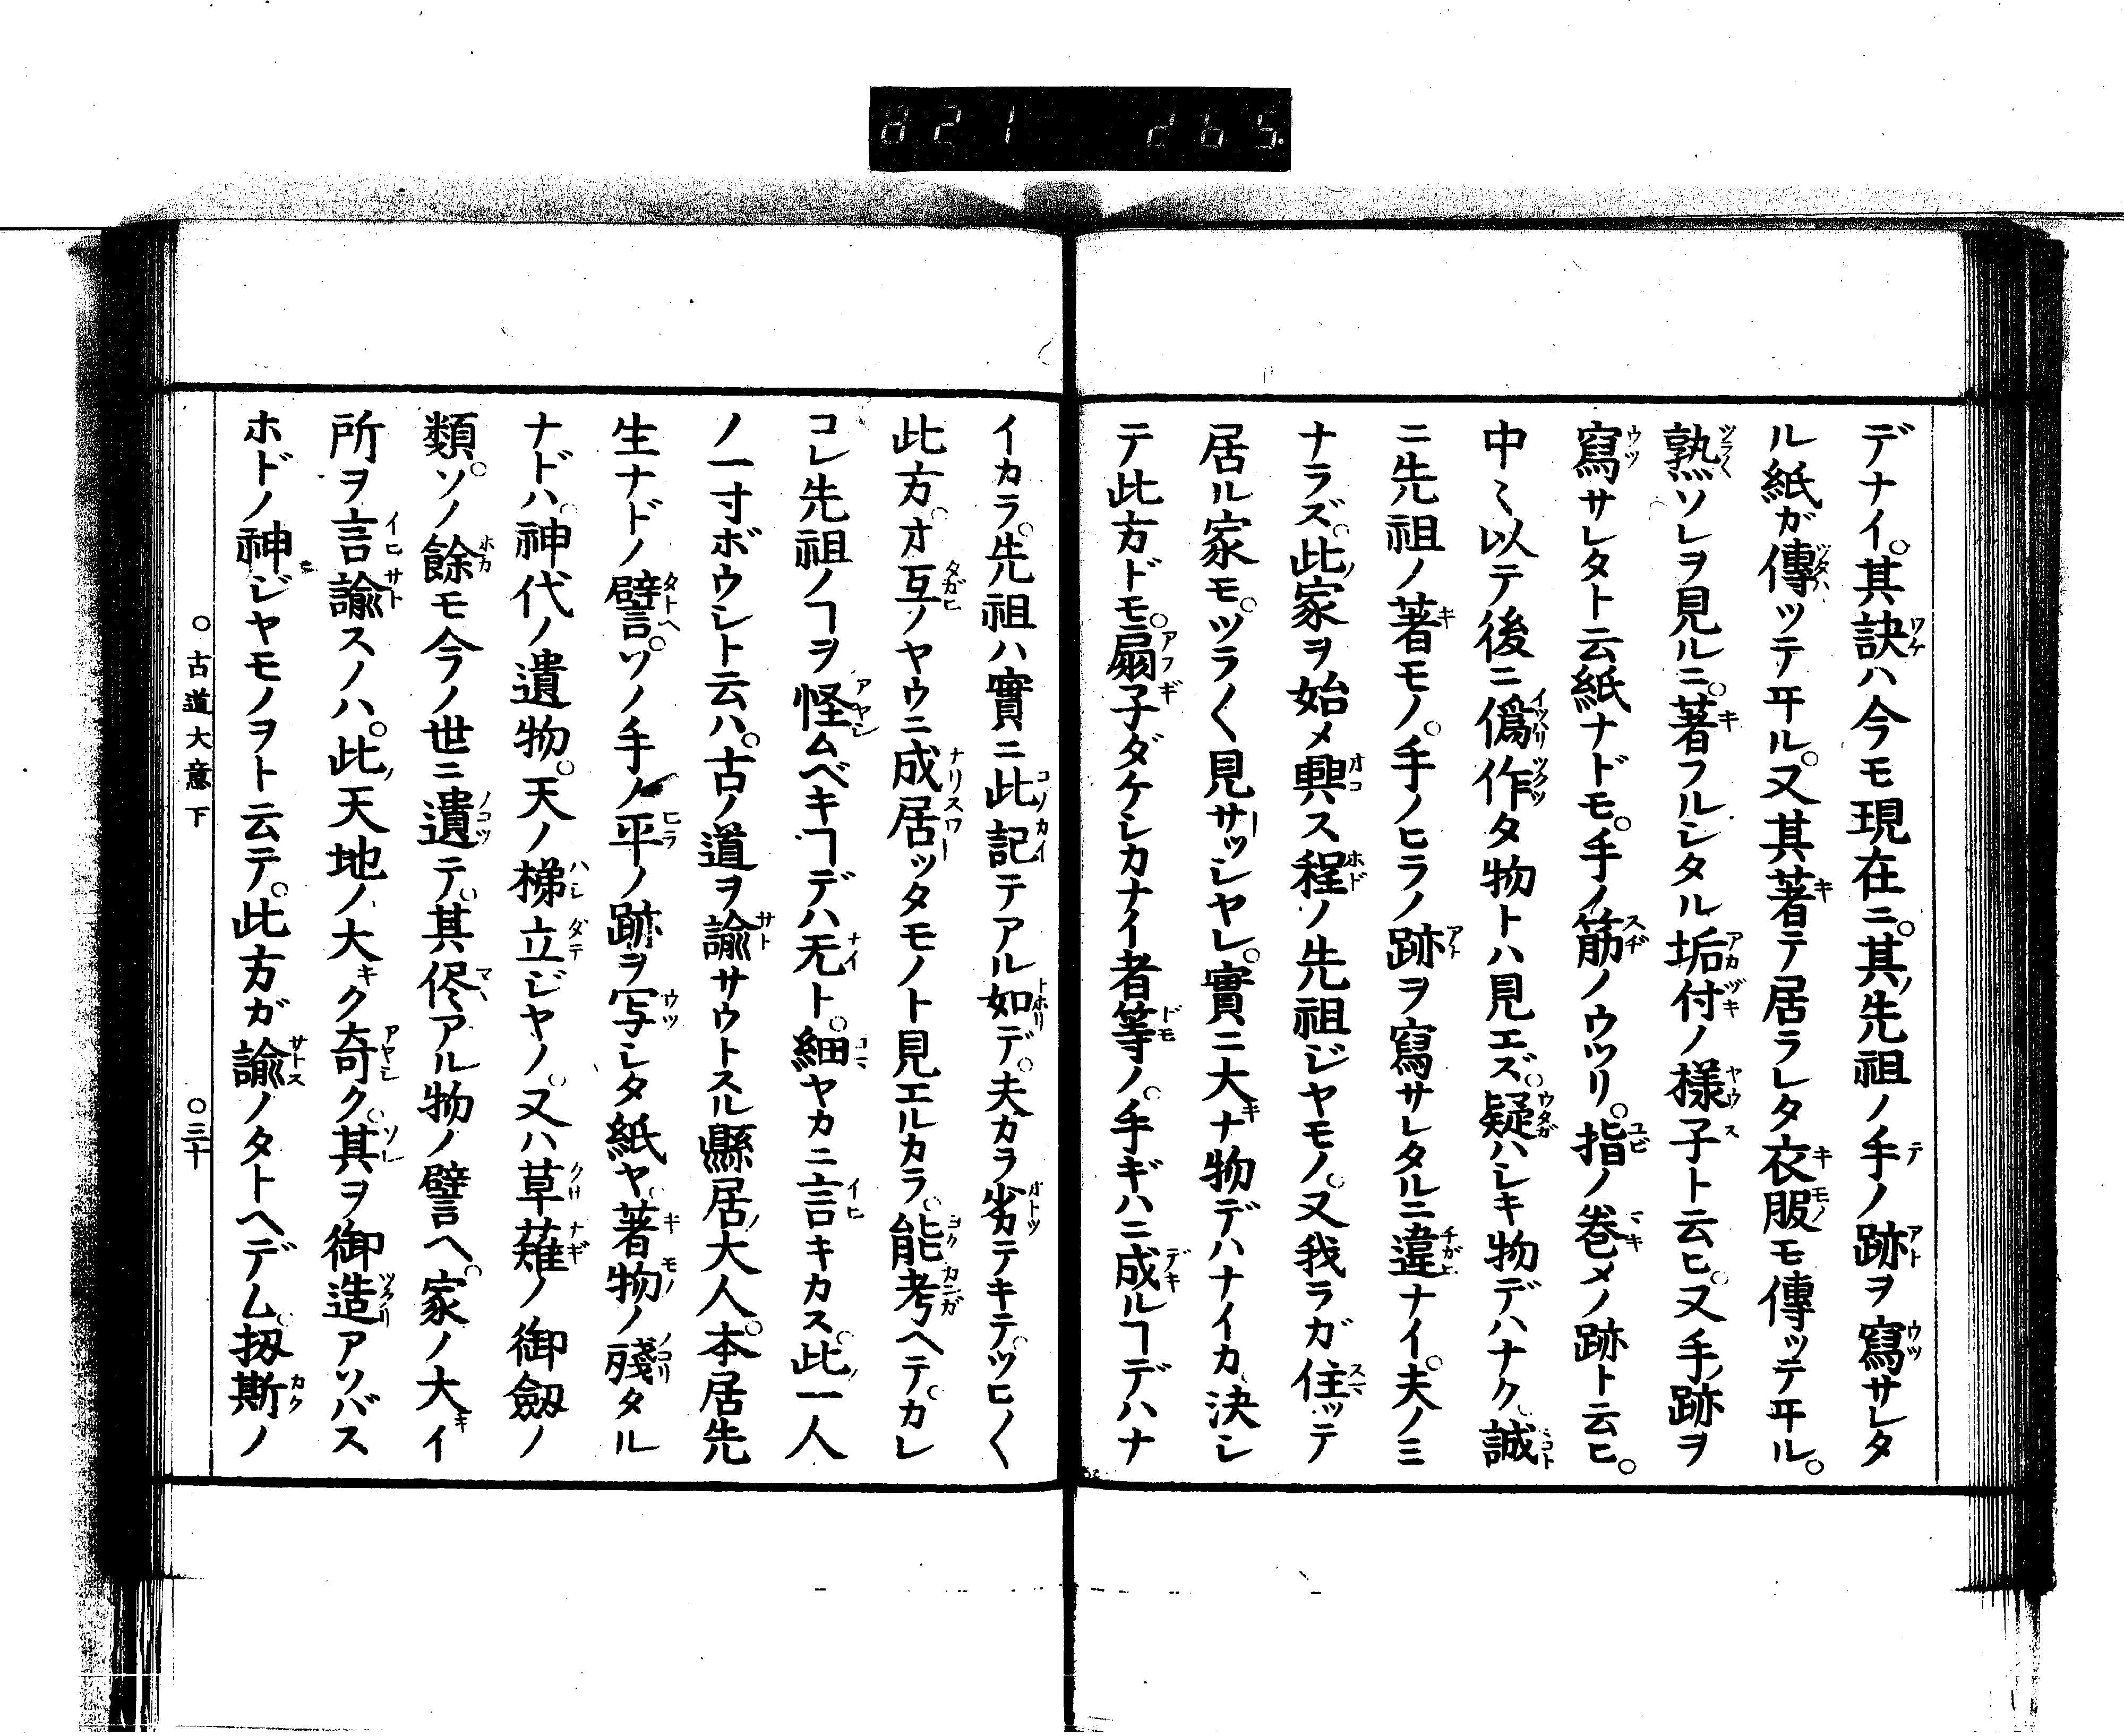 821 265
デナイ。其訣ハ今モ現在ニ。其ノ先祖ノ手ノ跡ヲ寫サレタ
ル紙ガ傳ツテヰル。又其著テ居ラレタ衣服モ傳ツテヰル。
熟ソレヲ見ルニ。著フルシタル垢付ノ樣子ト云ヒ。又手ノ跡ヲ
寫サレタト云紙ナドモ。手ノ筋ノウツリ。指ノ巻メノ跡ト云ヒ。
中〻以テ後ニ僞作タ物トハ見エズ。疑ハシキ物デハナク。誠
ニ先祖ノ著モノ。手ノヒラノ跡ヲ寫サレタルニ違ナイ。夫ノミ
ナラズ。此ノ家ヲ始メ興ス程ノ先祖ジヤモノ。又我ラガ住ツテ
居ル家モ。ツラ〱見サツシヤレ。實ニ大キナ物デハナイカ。決シ
テ此方ドモ。扇子ダケシカナイ者等ノ。手ギハニ成ルヿデハナ
イカラ。先祖ハ實ニ此記テアル如デ。夫カラ劣テキテ。ツヒ〱
此方。オ互ノヤウニ成居ツタモノト見エルカラ。能考ヘテ。カレ
コレ先祖ノヿヲ怪ムベキヿデハ无ト。細ヤカニ言キカス。此ノ一人
ノ一寸ボウシト云ハ。古ノ道ヲ諭サウトスル縣居ノ大人。本居先
生ナドノ譬。ソノ手ノ平ノ跡ヲ写シタ紙ヤ。著物ノ殘タル
ナドハ。神代ノ遺物。天ノ梯立ジヤノ。又ハ草薙ノ御劔ノ
類。ソノ餘モ今ノ世ニ遺テ。其侭アル物ノ譬ヘ。家ノ大キイ
所ヲ言諭スノハ。此ノ天地ノ大キク奇ク。其ヲ御造アソバス
ホドノ神ジヤモノヲト云テ。此方ガ諭ノタトヘデム。扨斯ノ
○古道大意下 ○三十